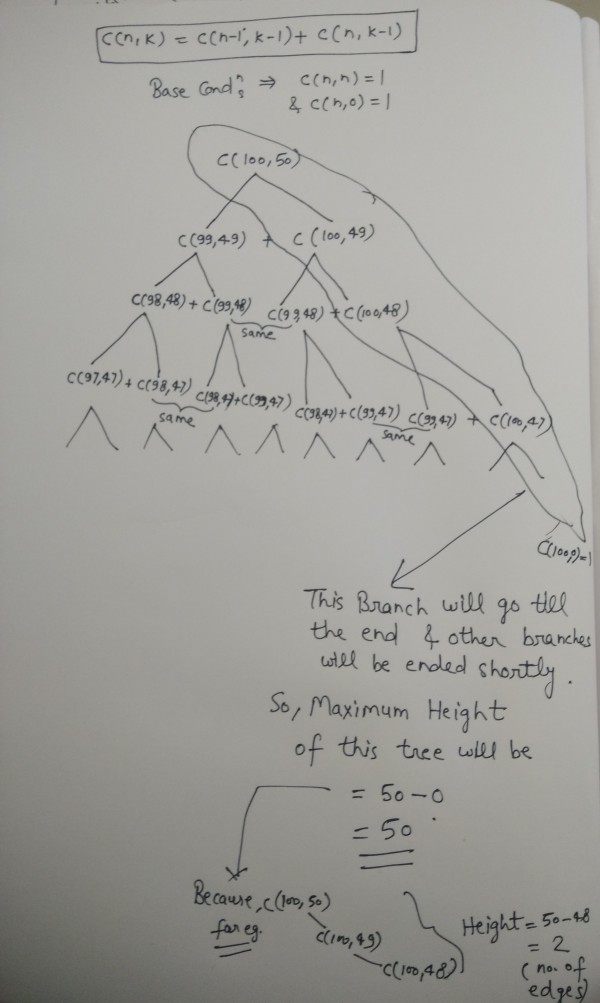 C(n,k) = C(n-1, k-1) + C(n, k-1)
Base Condⁿs ⇒ C(n,n) = 1
& C(n,0) = 1
C(100,50)
C(99,49) + C(100,49)
C(98,48) + C(99,48) C(99,48) + C(100,48)
same
C(97,47) + C(98,47) C(98,47) + C(99,47) C(98,47) + C(99,47) C(99,47) + C(100,47)
same same
C(100,0) = 1
This Branch will go till
the end & other branches
will be ended shortly.
So, Maximum Height
of this tree will be
= 50 - 0
= 50
Because, C(100,50)
for eg.
C(100,49)
C(100,48)
Height = 50-48
= 2
(no. of
edges)